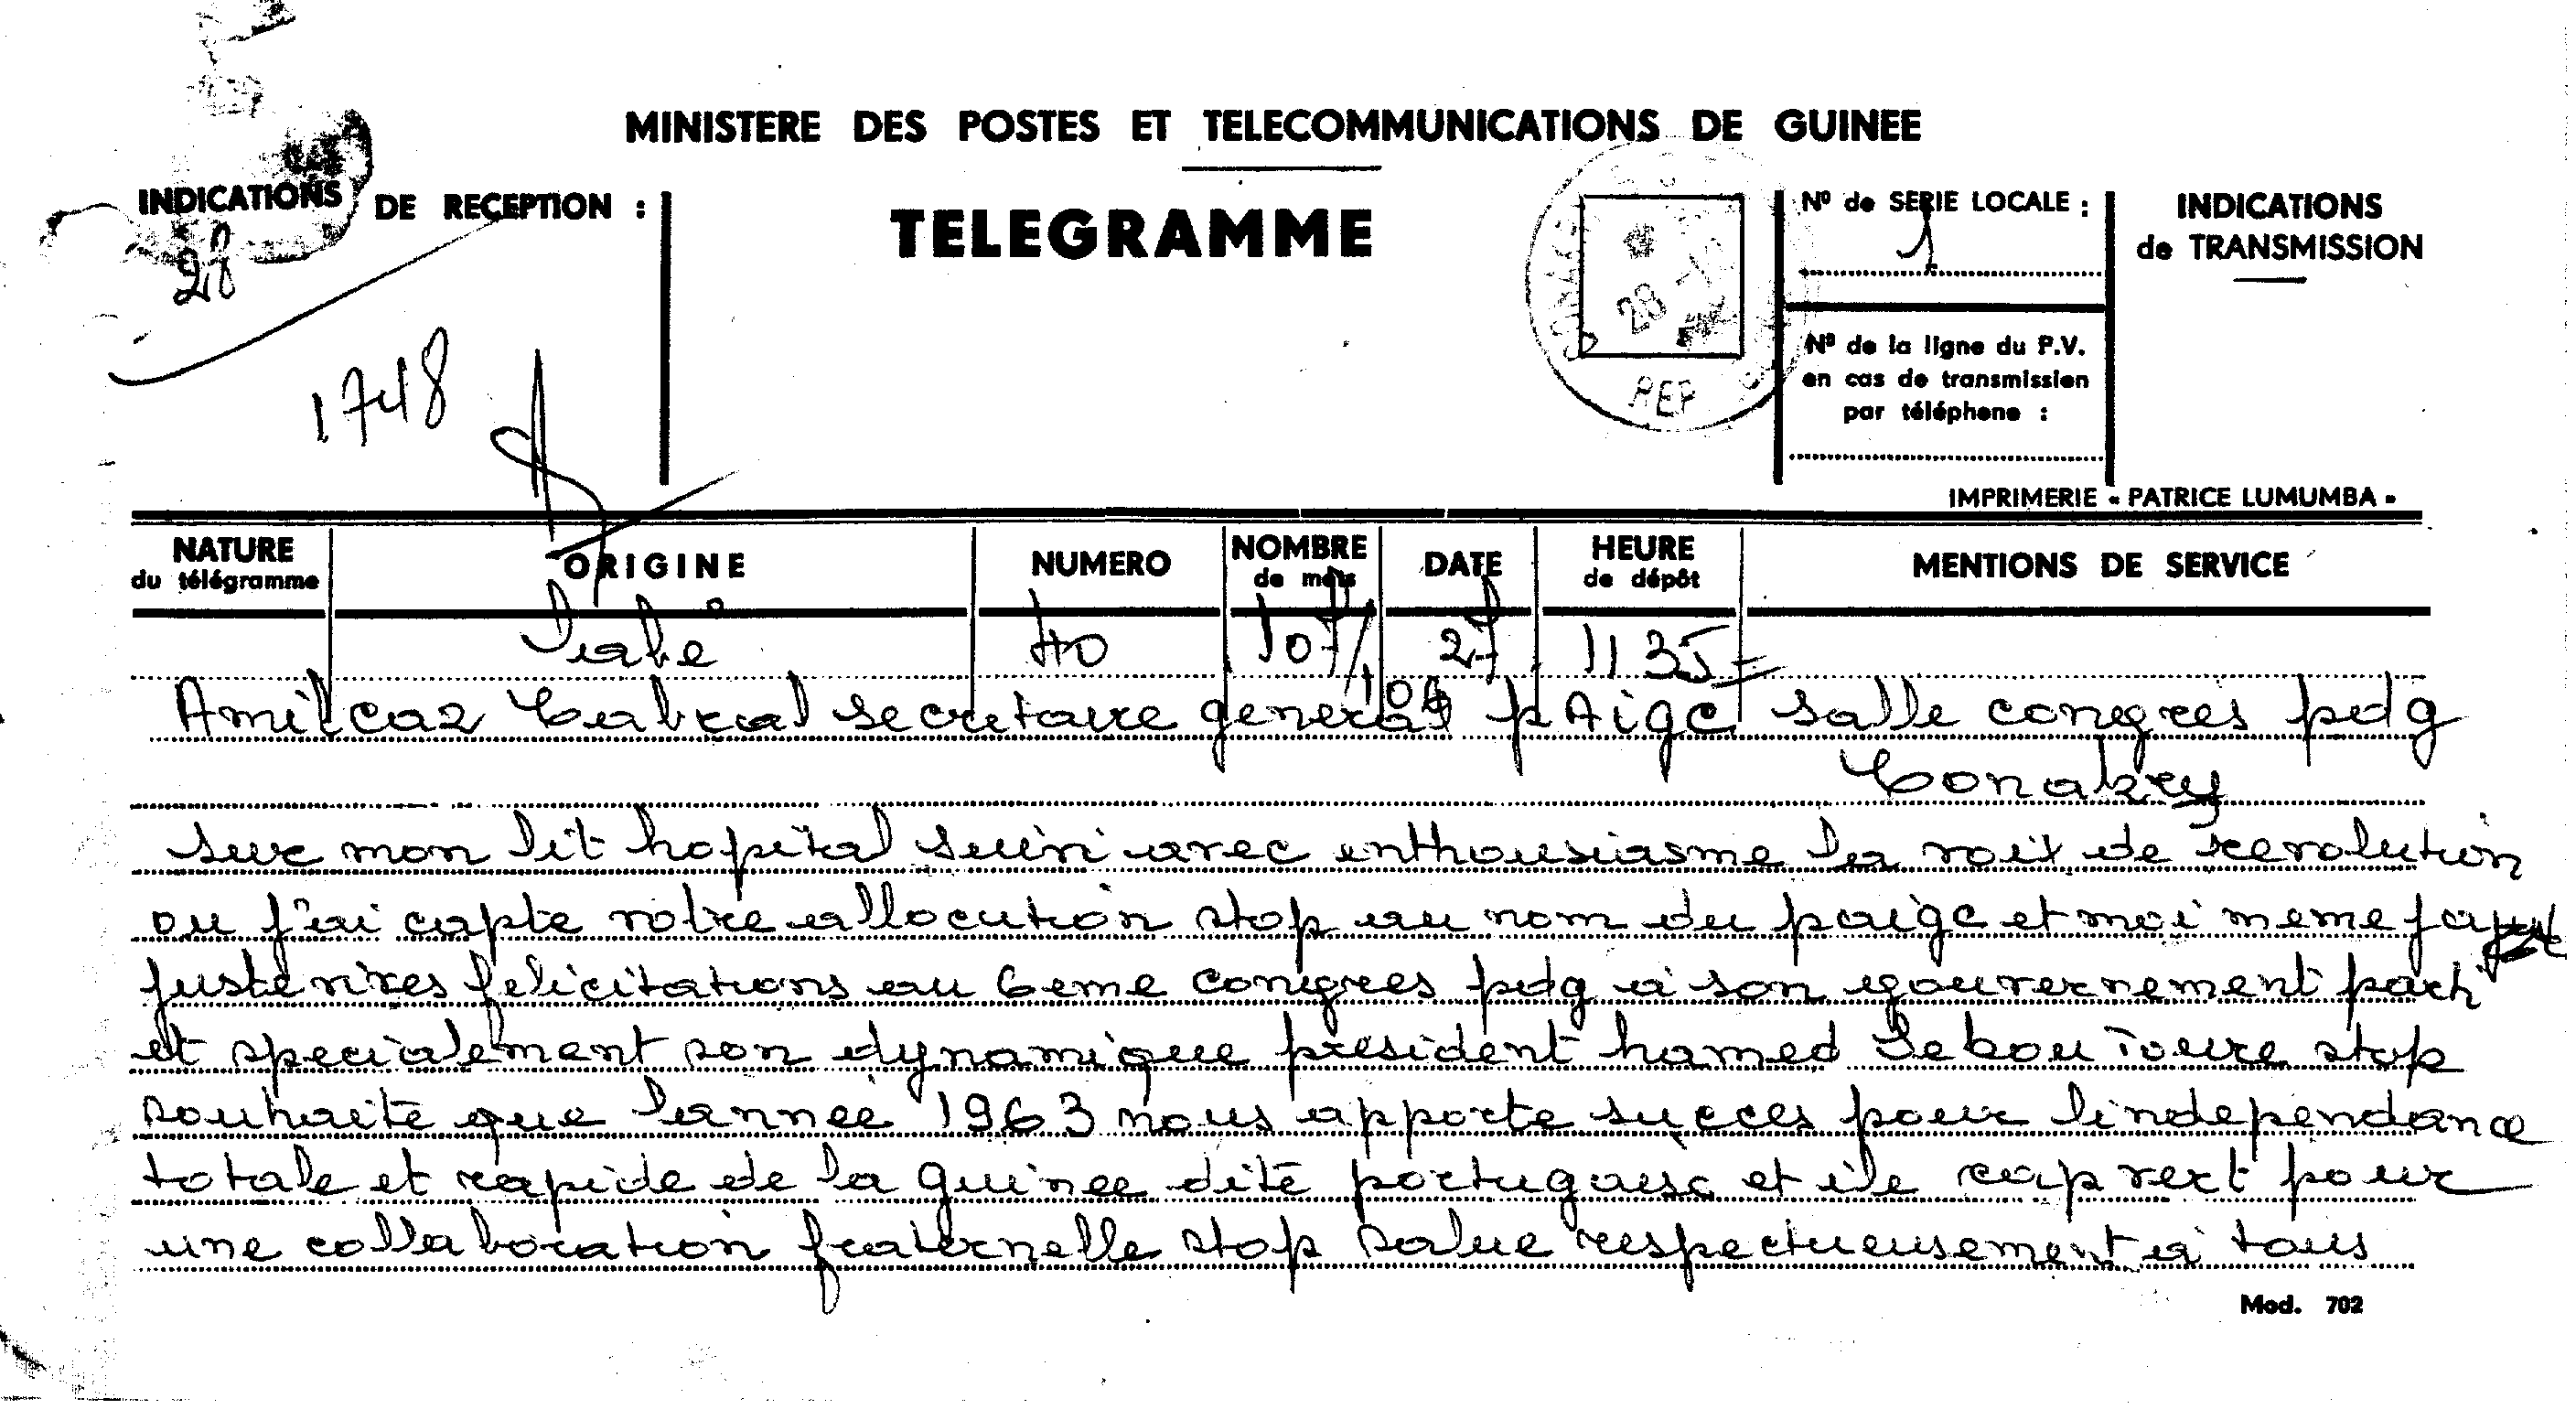 MINISTERE DES POSTES ET TELECOMMUNICATIONS DE GUINEE
INDICATIONS DE RECEPTION :
28
1748
TELEGRAMME
REP
28
Nº de SERIE LOCALE :
1
Nº de la ligne du P.V.
en cas de transmission
par téléphone :
INDICATIONS
de TRANSMISSION
IMPRIMERIE « PATRICE LUMUMBA »
NATURE
du télégramme
ORIGINE
NUMERO
NOMBRE
de mots
DATE
HEURE
de dépôt
MENTIONS DE SERVICE
40 107/104 27 1135=
Amilcar Cabral secretaire general pAigc salle congres pdg
Conakry
sur mon lit hopital suivi avec enthousiasme la voix de revolution
ou j'ai capte votre allocution stop au nom du paigc et moi meme
juste vives felicitations au 6eme congres pdg a son gouvernement parti
et specialement son dynamique president hamed Sekou Toure stop
souhaite que lannee 1963 nous apporte succes pour lindependance
totale et rapide de la guinee dite portugaise et ile cap vert pour
une collaboration fraternelle stop salue respectueusement a tous
Mod. 702